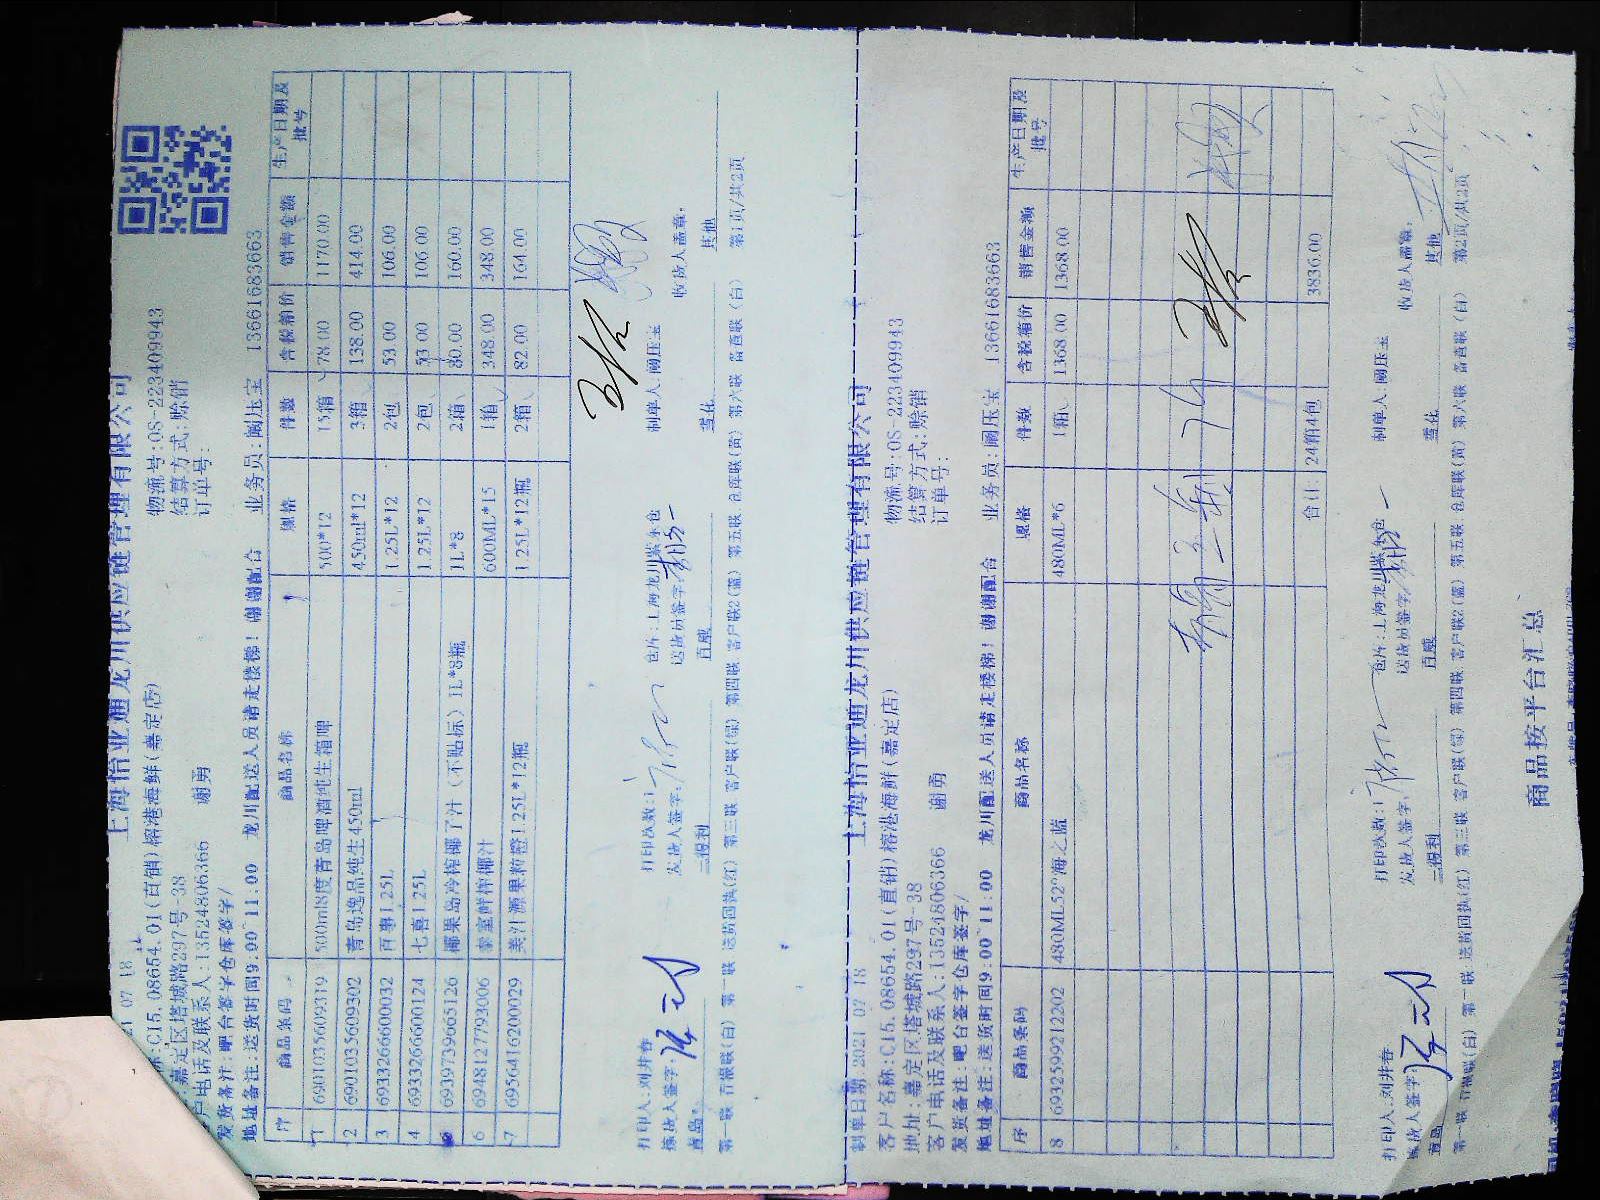 上海怡亚通龙川供应链管理有限公司
21 07 18
物流号:OS-223409943
C15.08654.01(直销)榕港海鲜(嘉定店)
结算方式:赊销
嘉定区塔城路297号-38
订单号:
户电话及联系人:13524806366 谢勇
发货备注:吧台签字仓库签字/
地址备注:送货时间9:00~11:00 龙川配送人员请走楼梯!谢谢配合 业务员:阚压宝 13661683663
序 商品条码 商品名称 规格 件数 含税箱价 销售金额 生产日期及批号
1 6901035609319 500ml8度青岛啤酒纯生箱啤 500*12 15箱 78.00 1170.00
2 6901035609302 青岛逸品纯生450ml 450ml*12 3箱 138.00 414.00
3 6933266600032 百事1.25L 1.25L*12 2包 53.00 106.00
4 6933266600124 七喜1.25L 1.25L*12 2包 53.00 106.00
5 6939739665126 椰果岛冷榨椰子汁(不贴标)1L*8瓶 1L*8 2箱 80.00 160.00
6 6948127793006 泰室鲜榨椰汁 600ML*15 1箱 348.00 348.00
7 6956416200029 美汁源果粒橙1.25L*12瓶 1.25L*12瓶 2箱 82.00 164.00
打印人:刘井春 打印次数:1 仓库:上海龙川紫东仓 制单人:阚压宝 收货人盖章:
拣货人签字: 发货人签字: 送货员签字:
青岛 三得利 百威 雪花 其他
第一联 存根联(白) 第二联 送货回执(红) 第三联 客户联(绿) 第四联 客户联2(蓝) 第五联 仓库联(黄) 第六联 备查联(白) 第1页/共2页
上海怡亚通龙川供应链管理有限公司
制单日期 2021 07 18
物流号:OS-223409943
客户名称:C15.08654.01(直销)榕港海鲜(嘉定店)
结算方式:赊销
地址:嘉定区塔城路297号-38
订单号:
客户电话及联系人:13524806366 谢勇
发货备注:吧台签字仓库签字/
地址备注:送货时间9:00~11:00 龙川配送人员请走楼梯!谢谢配合 业务员:阚压宝 13661683663
序 商品条码 商品名称 规格 件数 含税箱价 销售金额 生产日期及批号
8 6932599212202 480ML52°海之蓝 480ML*6 1箱 1368.00 1368.00
合计: 24箱4包 3836.00
打印人:刘井春 打印次数:1 仓库:上海龙川紫东仓 制单人:阚压宝 收货人盖章:
拣货人签字: 发货人签字: 送货员签字:
青岛 三得利 百威 雪花 其他
第一联 存根联(白) 第二联 送货回执(红) 第三联 客户联(绿) 第四联 客户联2(蓝) 第五联 仓库联(黄) 第六联 备查联(白) 第2页/共2页
商品按平台汇总